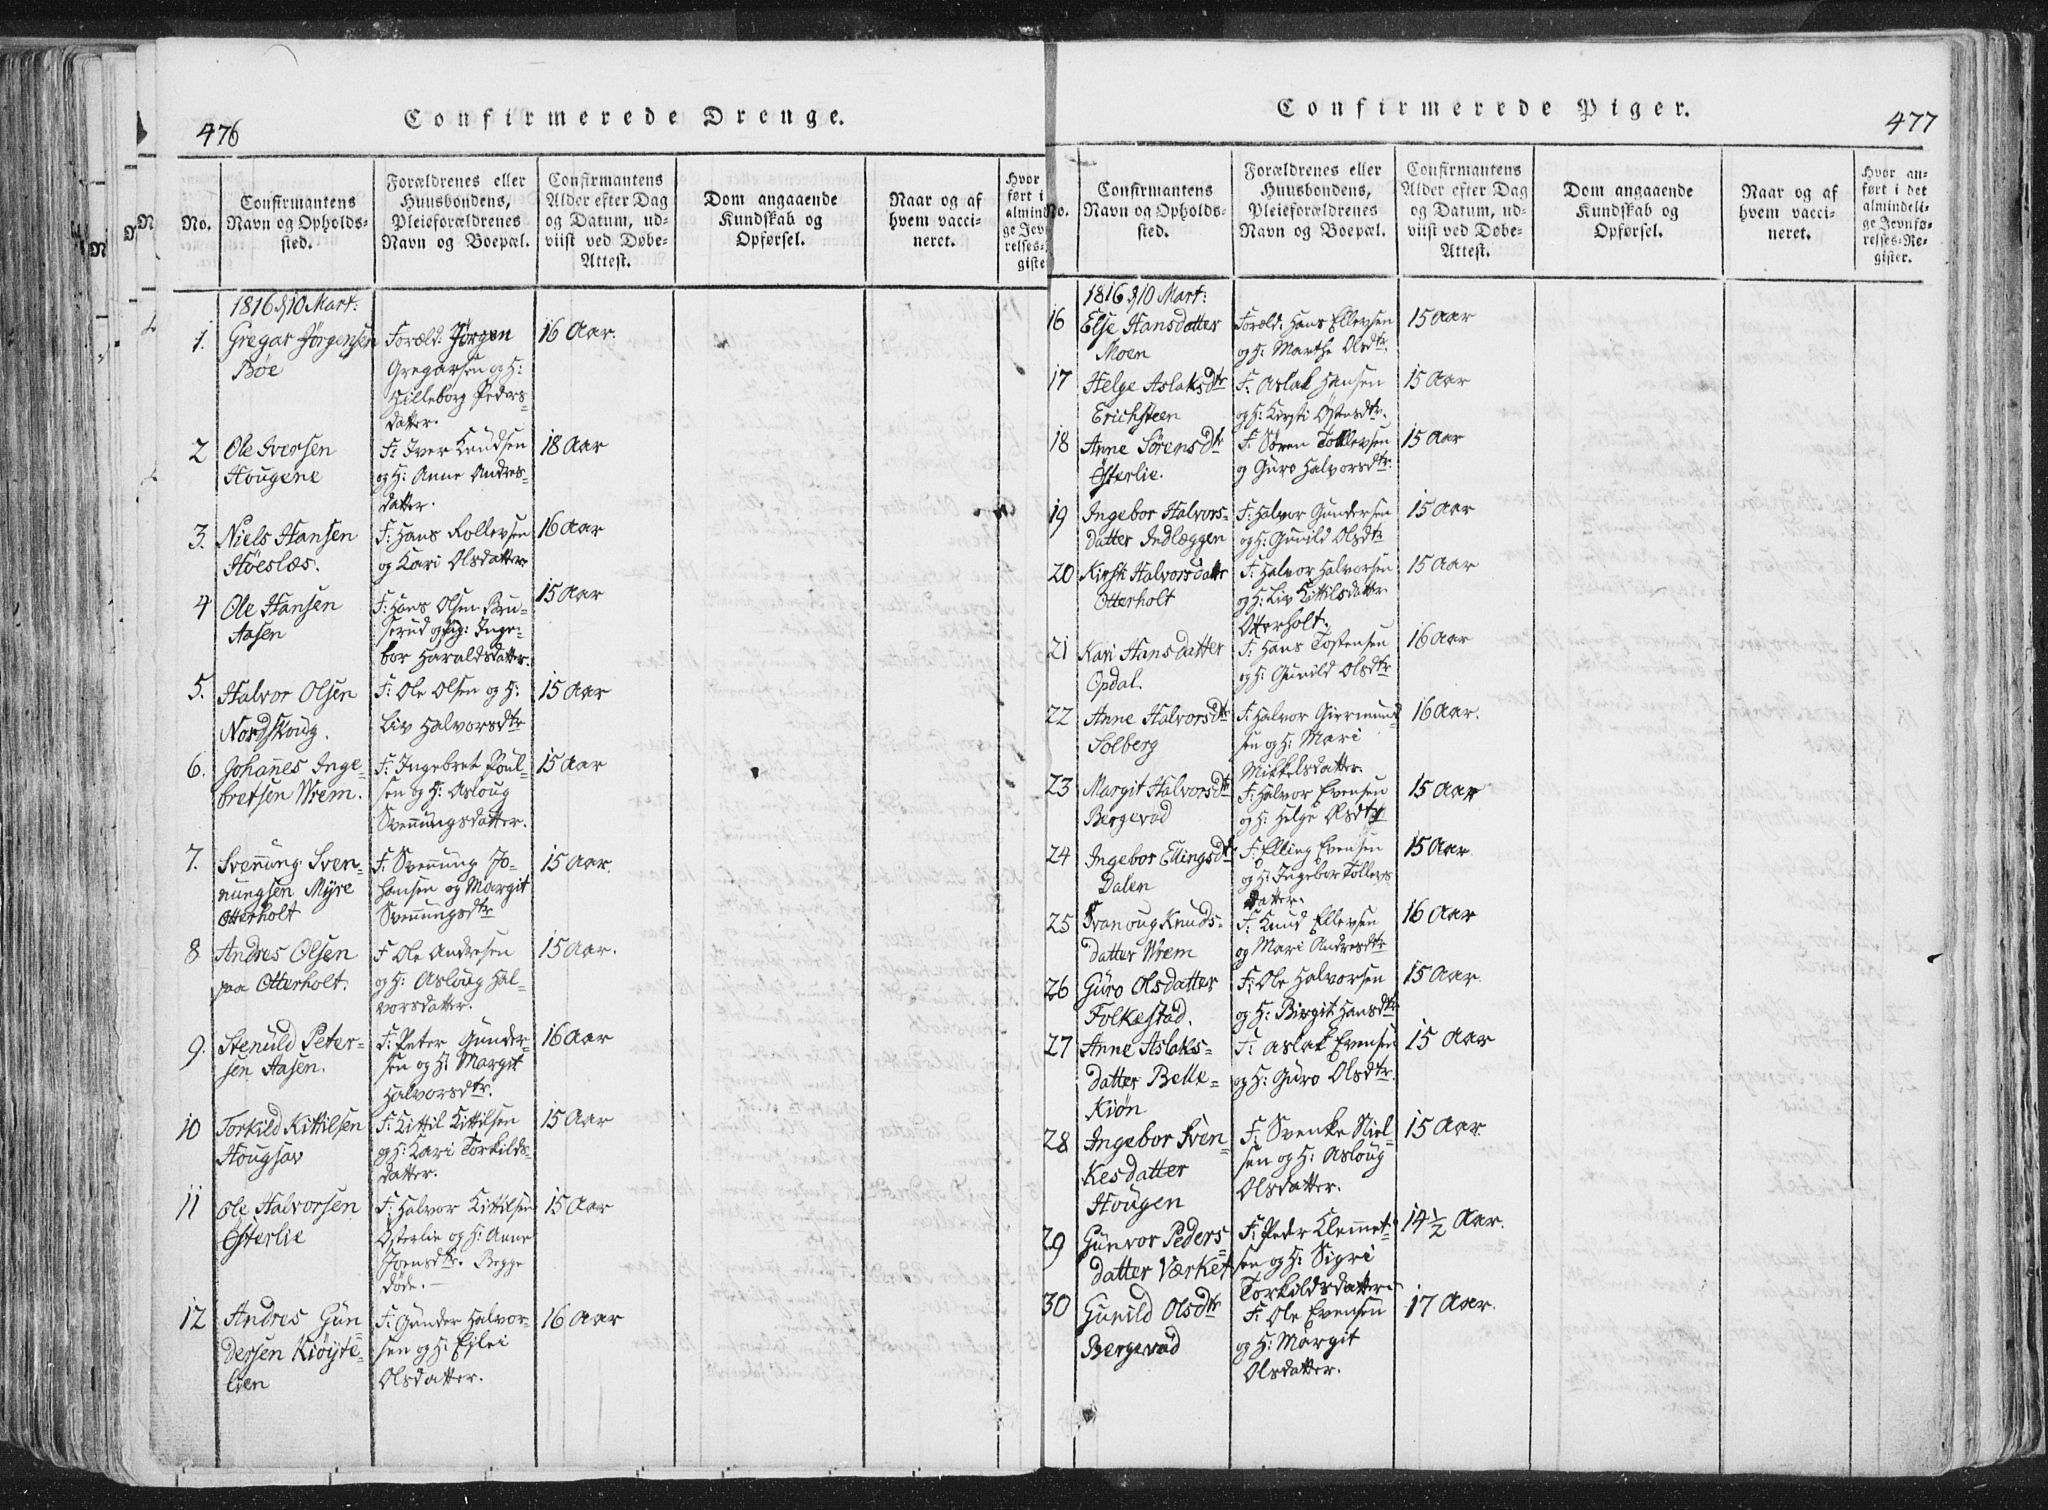 476
Confirmerede Drenge.
No.
Confirmantens
Navn og Opholds-
sted.
Forældrenes eller
Huusbondens,
Pleieforældrenes
Navn og Boepæl.
Confirmantens
Alder efter Dag
og Datum, ud-
viist ved Døbe-
Attest.
Dom angaaende
Kundskab og
Opførsel.
Naar og af
hvem vacci-
neret.
Hvor
ført i
almind
ge Jev
relses-
giste
1816 d 10 Mart:
1. Gregar Jørgensen
Bøe
Foræld: Jørgen
Gregarsen og H:
Hilleborg Peders-
datter.
16 Aar.
2 Ole Iversen
Hougene
F: Iver Knudsen
og H: Anne Andres-
datter.
18 Aar
3. Niels Hansen
Høeslæs.
F: Hans Rollevsen
og Kari Olsdatter
16 Aar
4 Ole Hansen
Aasen
F: Hans Olsen Bru-
serud og H: Inge-
bor Haraldsdatter.
15 Aar
5. Halvor Olsen
Nordskoug.
F: Ole Olsen og H:
Liv Halvorsdtr
15 Aar
6. Johanes Inge-
bretsen Wrem.
F: Ingebret Poul-
sen og H: Asloug
Svenungsdatter.
15 Aar
7. Svenung Sven-
nungsen Myre
Otterholt
F: Svenung Jo-
hansen og Margit
Svenungsdtr
15 Aar.
8 Andres Olsen
paa Otterholt.
F Ole Andresen
og H: Asloug Hal-
vorsdatter.
15 Aar.
9. Stenuld Peter-
sen Aasen.
F: Peter Gunder-
sen og H: Margit
Halvorsdtr.
16 Aar
10 Torkild Kittilsen
Hougsav
F: Kittil Kittilsen
og H: Kari Torkilds-
datter.
15 Aar
11 Ole Halvorsen
Østerlie
F: Halvor Kittilsen
Østerlie og H: Anne
Joensdtr. Begge
døde. —
15 Aar
12 Andres Gun-
dersen Kiøyte-
lien
F: Gunder Halvor-
sen og H: Eslei
Olsdatter.
16 Aar
Confirmerede Piger.
477
No.
Confirmantens
Navn og Opholds-
sted.
Forældrenes eller
Huusbondens,
Pleieforældrenes
Navn og Boepæl.
Confirmantens
Alder efter Dag
og Datum, ud-
viist ved Døbe-
Attest.
Dom angaaende
Kundskab og
Opførsel.
Naar og af
hvem vacci-
neret.
Hvor an-
ført i det
almindeli-
ge Jevnfø-
relses-Re-
gister.
1816 d 10 Mart:
16 Else Hansdatter
Moen
Foræld: Hans Ellevsen
og H: Marthe Olsdtr.
15 Aar
17 Helge Aslaksdtr
Erichsteen
F: Aslak Hansen
og H: Kirsti Østensdtr.
15 Aar
18 Anne Sørensdtr
Østerlie.
F: Søren Tollevsen
og Guro Halvorsdtr.
15 Aar
19 Ingebor Halvors-
datter Indlæggen
F: Halvor Gundersen
og H: Gunild Olsdtr
15 Aar
20 Kirsti Halvorsdatter
Otterholt
F: Halvor Halvorsen
og H: Liv Kittilsdatter
Otterholt.
15 Aar
21 Kari Hansdatter
Opdal.
F: Hans Tostensen
og H: Gunild Olsdtr
16 Aar
22 Anne Halvorsdtr
Solberg
F: Halvor Giermund-
sen og H: Mari
Mikkelsdatter.
16 Aar.
23 Margit Halvorsdtr
Bergevad
F: Halvor Evensen
og H: Helge Olsdtr
15 Aar
24 Ingebor Ellingsdtr
Dalen
F: Elling Evensen
og H: Ingebor Tollevs
datter.
15 Aar
25 Svanoug Knuds-
datter Wrem
F: Knud Ellevsen
og Mari Andresdtr
16 Aar
26 Guro Olsdatter
Folkestad.
F: Ole Halvorsen
og H: Birgit Hansdtr
15 Aar
27 Anne Aslaks-
datter Belle-
kiøn
F: Aslak Evensen
og H: Guro Olsdtr.
15 Aar
28 Ingebor Sven-
kesdatter
Hougen
F: Svenke Niel-
sen og H: Asloug
Olsdatter.
15 Aar
29 Gunvor Peders-
datter Værket
F: Peder Klemet-
sen og H: Sigri
Torkildsdatter
14 1/2 Aar.
30 Gunild Olsdtr
Bergevad
F: Ole Evensen
og H: Margit
Olsdatter.
17 Aar.